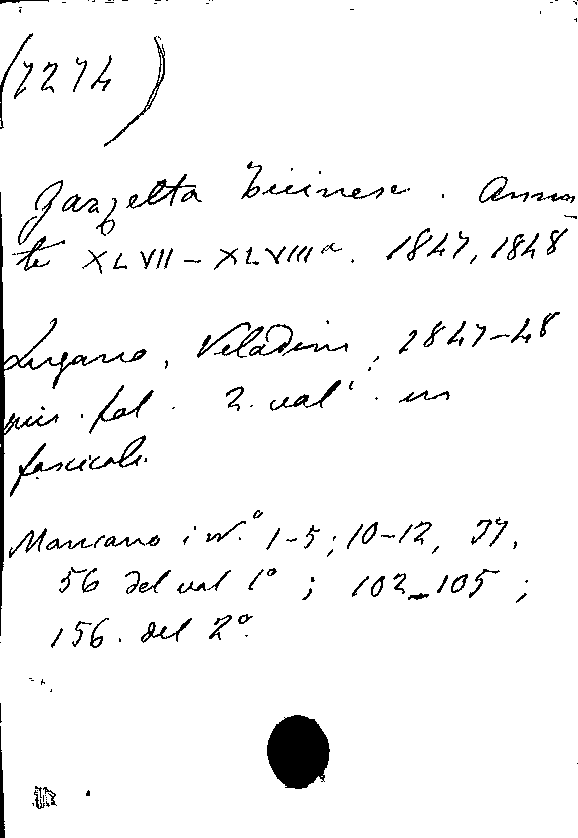 (7274)
Gazzetta Ticinese. Anna-
te XLVII-XLVIIIª. 1847, 1848
Lugano, Veladini, 1847-48
in fol. 2 vol.ⁱ in
fascicoli.
Mancano i nº 1-5; 10-12, 37,
56 del vol 1º; 102-105;
156. del 2º.